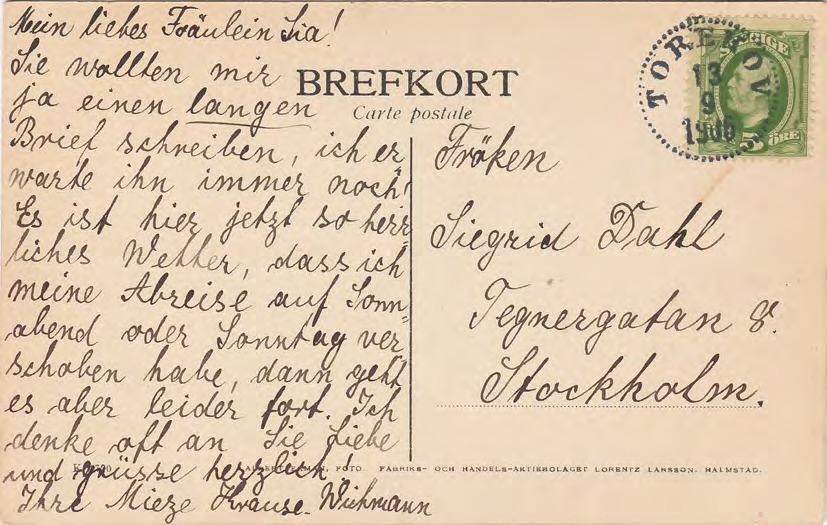 Mein liebes Fräulein Sia!
Sie wollten mir
ja einen langen
Brief schreiben, ich er
warte ihn immer noch!
Es ist hier jetzt so herr
liches Wetter, dass ich
meine Abreise auf Sonn
abend oder Sonntag ver
schoben habe, dann geht
es aber leider fort. Ich
denke oft an Sie Liebe
und grüsse herzlich!
Ihre Mieze Krause-Wichmann
BREFKORT
Carte postale
TOREKOV
13
9
SVERIGE
5 ÖRE
Fröken
Siegrid Dahl
Tegnergatan 8.
Stockholm.
FOTO. FABRIKS- OCH HANDELS-AKTIEBOLAGET LORENTZ LARSSON, HALMSTAD.